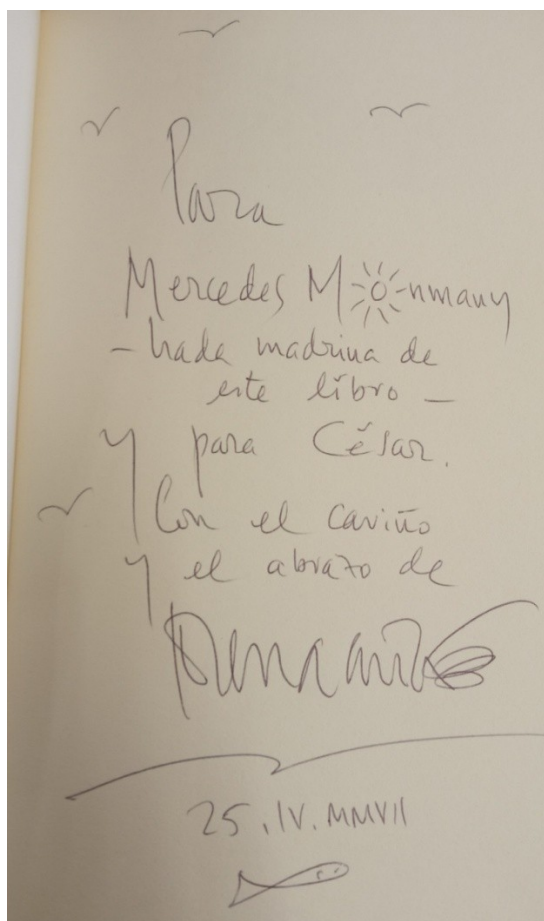 Para
Mercedes Monmany
– hada madrina de
este libro –
y para César.
Con el cariño
y el abrazo de
25.IV.MMVII